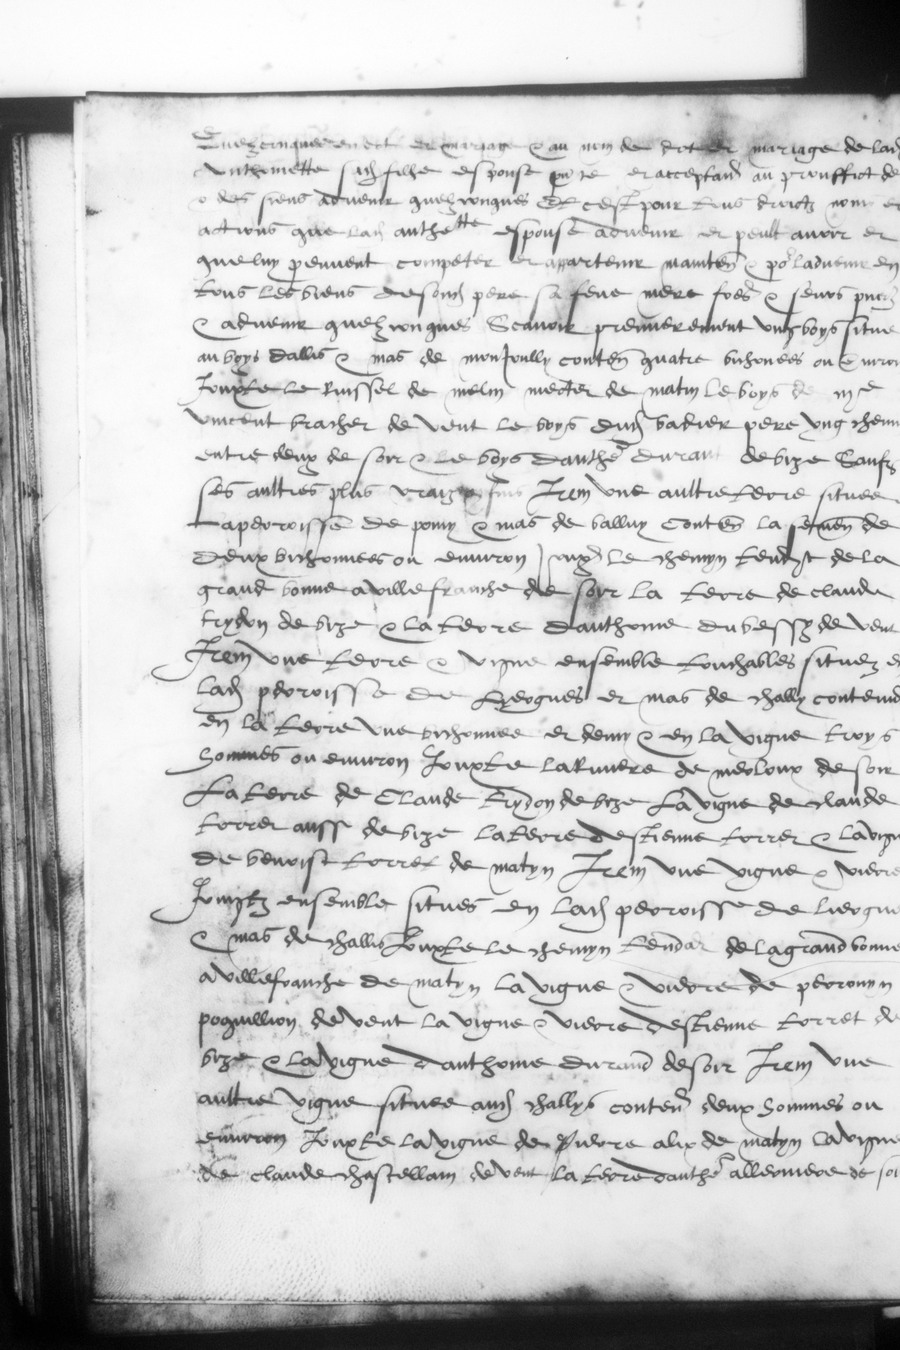 Quelzconques en et de mariage & au nom de dot et mariage de lad
Anthomette sad fille espouse pnte et acceptand au prouffict de
& des siens advenir quelzconques Et cest pour tous droictz noms et
actions que lad anthette espouse advenir et peult avoir et
que luy peuvent competer et appartenir mainten & por ladvenir en
tous les biens de sond pere sa feue mere foes & seurs pns
& advenir quelzconques Scavoir premierement ung boys situe
au boys dallis & mas de monjoully conten quatre bichonees ou environ
Jouxte le Ruissel de melin meder de matin le boys de me
vincent bracher de vent le boys dud badier pere ung chemin
entre deux de soir & le boys danthe durant de bize Saufz
ses aultres plus vraiz confins Item une aultre terre situee
Laperroisse de pomy & mas de balluy conten la semen de
Deux bichonnees ou environ Jouxte le chemyn tendent de la
grand bonne a villefranche de soir la terre de claude
trydon de bize & la terre danthome dubessy de vent
Item une terre & vigne ensemble touchables situez en
lad perroisse de Lyergues et mas de chally contenid
en la terre une bichonnee et demy & en la vigne troys
Sommes ou environ Jouxte la Riviere de merloux de soir
La terre de Claude trydon de bize La vigne de claude
torret aussi de bize la terre destienne torret & la vigne
de benoist torret de matyn Item une vigne & vierre
Joinctz ensemble situes en lad perroisse de liergue
& mas de challis Jouxte le chemyn tendent de la grand bonne
a villefranche de matyn la vigne & vierre de perronyn
poquillion de vent la vigne & vierre destienne torret de
bize & la vigne danthome durand de soir Item une
aultre vigne situee aud challys conten deux sommes ou
environ Jouxte la vigne de pierre alix de matyn la vigne
de claude chastellain de vent la terre danthe allermere de soir